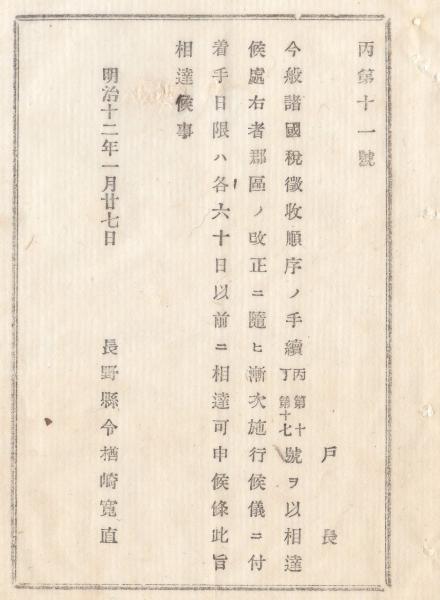 丙第十一號
戶長
今般諸國稅徵收順序ノ手續丙第十丁第十七號ヲ以相達
候處右者郡區ノ改正ニ隨ヒ漸次施行候儀ニ付
着手日限ハ各六十日以前ニ相達可申候條此旨
相達候事
明治十二年一月廿七日 長野縣令楢崎寬直